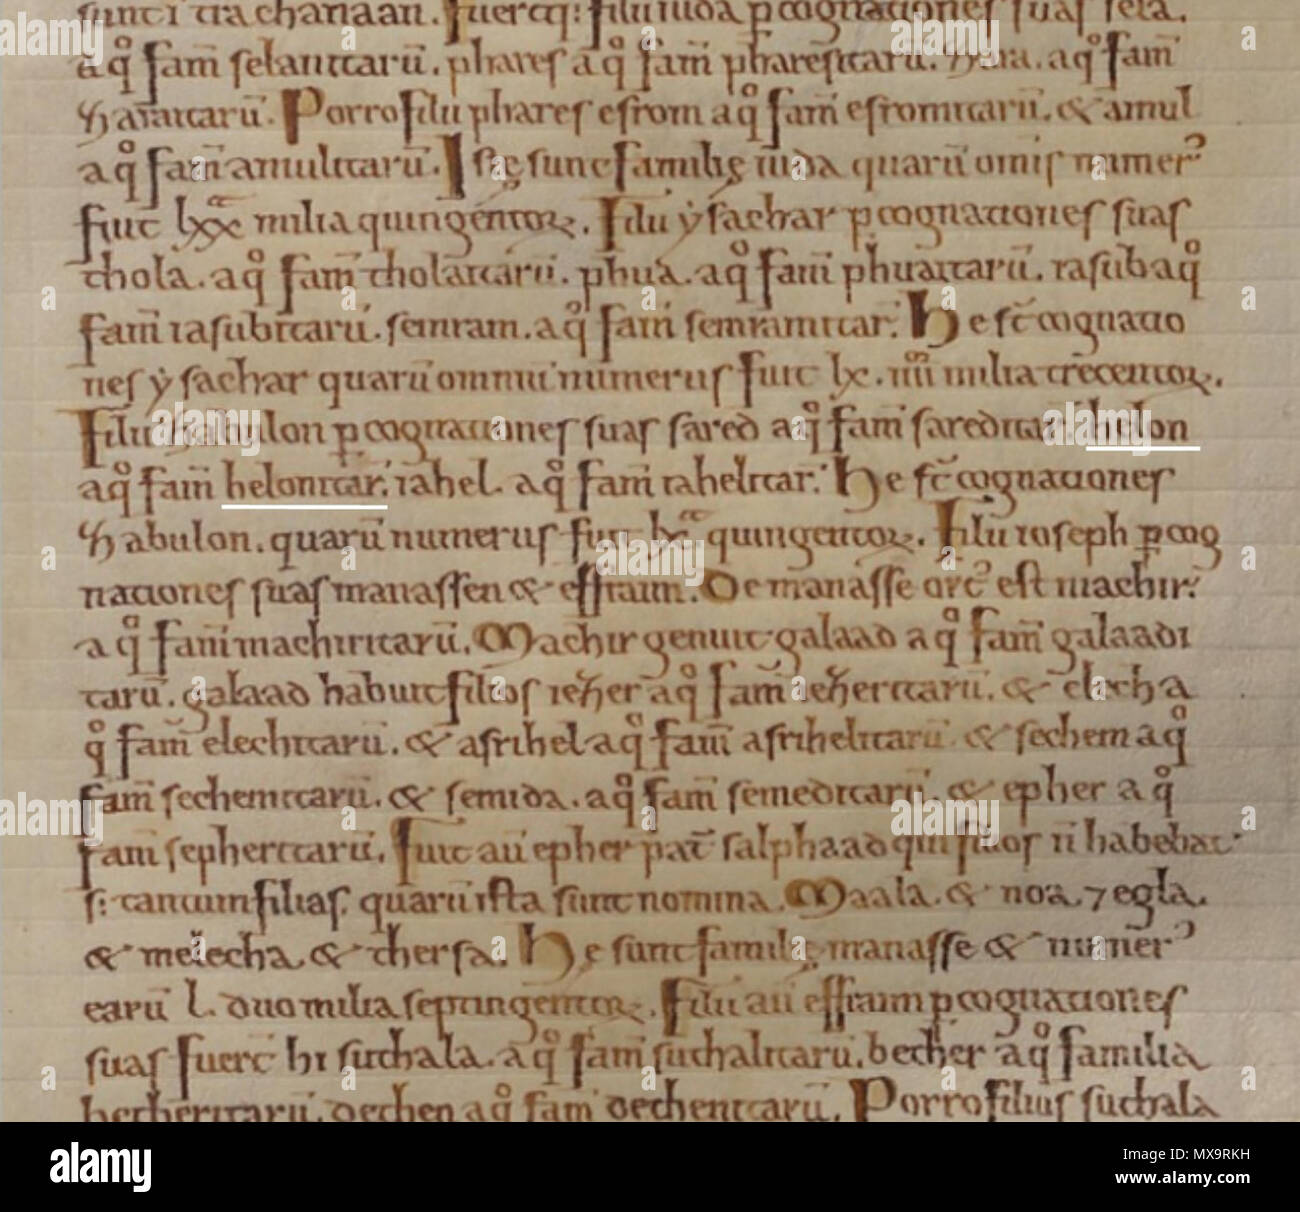 sunt i tra chanaan. fuerq; filii iuda p cognationes suas sela.
a q̊ fam̄ selanitarū. phares a q̊ fam̄ pharesitarū. hara. a q̊ fam̄
haraitarū. Porro filii phares esrom a q̊ fam̄ esromitarū. & amul
a q̊ fam̄ amulitarū. Istę sunt familię iuda quarū omis numer᾽
fuit lxx milia quingentoꝝ. Filii ẏsachar p cognationes suas
thola. a q̊ fam̄ tholaitarū. phua. a q̊ fam̄ phuaitarū. iasub a q̊
fam̄ iasubitarū. semram. a q̊ fam̄ semramitar. He st̄ cognatio
nes ẏsachar quarū omniū numerus fuit lx. iiii milia trecentoꝝ.
Filii habulon p cognationes suas sared a q̊ fam̄ sareditar. helon
a q̊ fam̄ helonitar. iahel. a q̊ fam̄ iahelitar. He st̄ cognationes
habulon. quarū numerus fuit lx quingentoꝝ. Filii ioseph p cog
nationes suas manassen & effraim. De manasse ort᾽ est machir.
a q̊ fam̄ machiritarū. Machir genuit galaad a q̊ fam̄ galaadi
tarū. galaad habuit filios iezer a q̊ fam̄ iezeritarū. & elech a
q̊ fam̄ elechitarū. & asrihel a q̊ fam̄ asrihelitarū & sechem a q̊
fam̄ sechemitarū. & semida. a q̊ fam̄ semeditarū. & epher a q̊
fam̄ sepheritarū. Fuit au̅ epher pat̄ salphaad qui filios n̄ habebat
s; tantum filias. quarū ista sunt nomina. Maala. & noa. ⁊ egla.
& melecha & thersa. He sunt familię manasse & numer᾽
earū l. duo milia septingentoꝝ. Filii au̅ effraim p cognationes
suas fuert̄ hi suthala. a q̊ fam̄ suthalitarū. becher a q̊ familia
becheritarū. dethen a q̊ fam̄ dethenitarū. Porro filius suthala
alamy
Image ID: MX9RKH
www.alamy.com